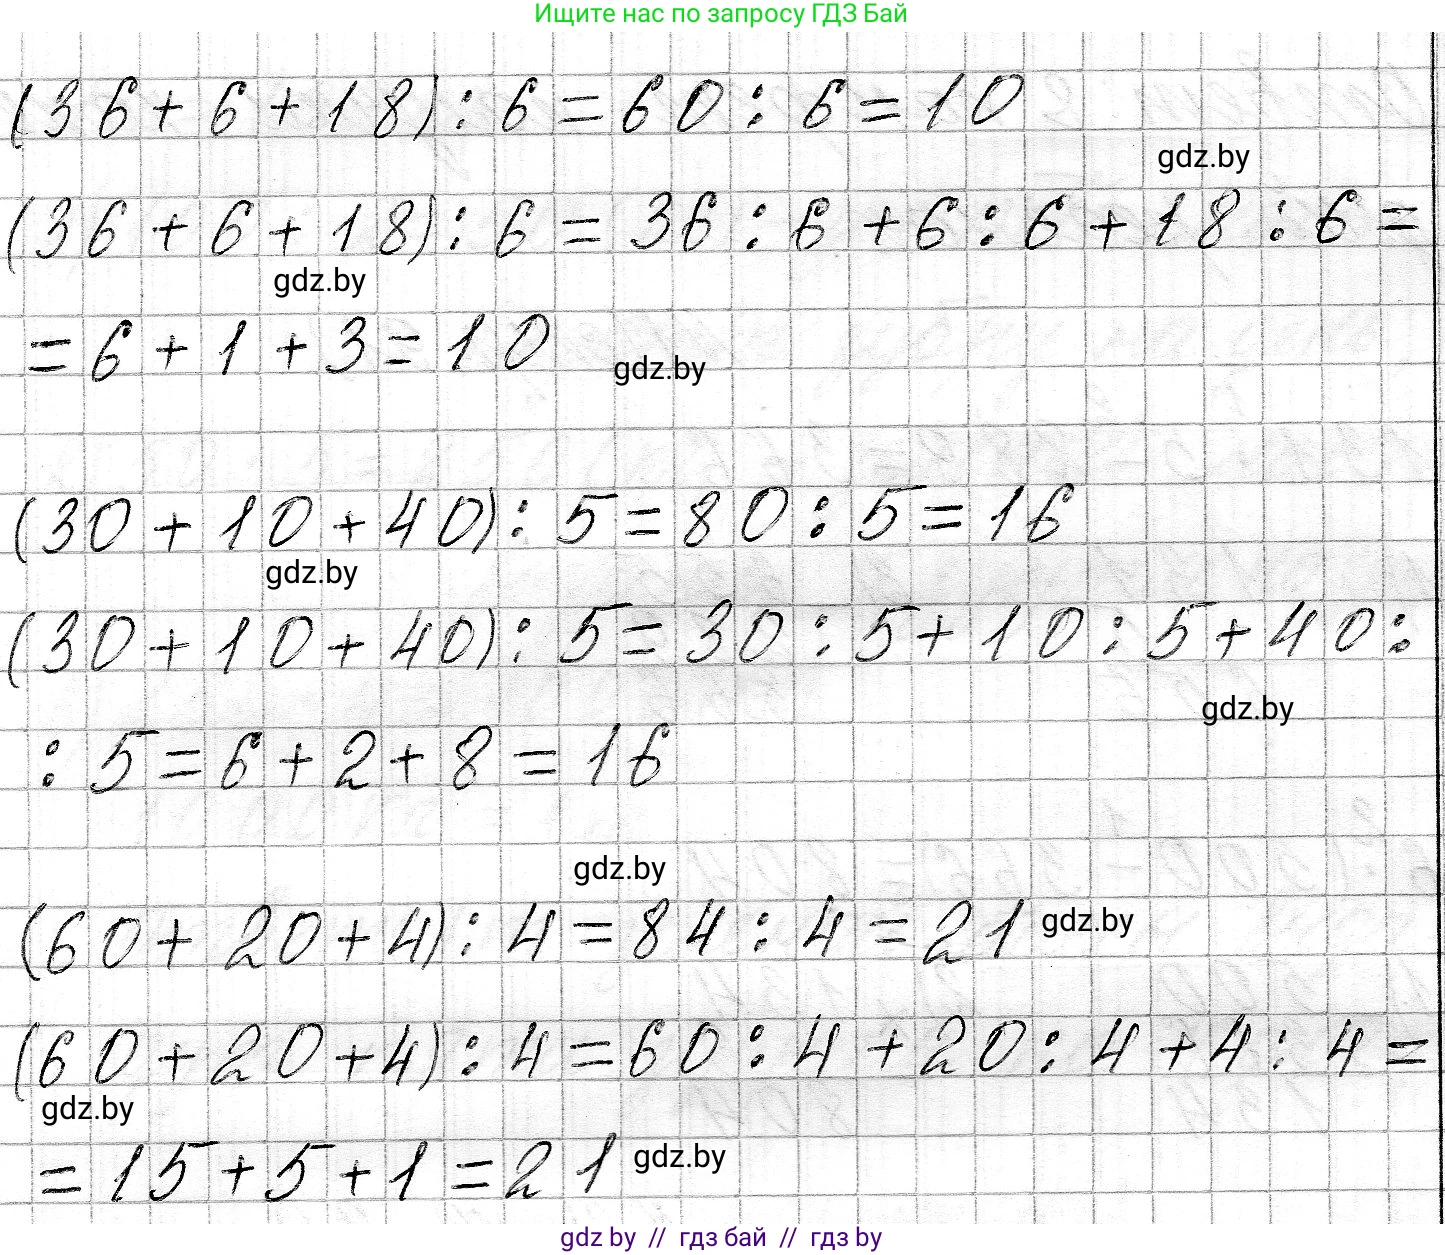 Ищите нас по запросу ГДЗ Бай
(36+6+18):6=60:6=10
gdz.by
(36+6+18):6=36:6+6:6+18:6=
gdz.by
=6+1+3=10
gdz.by
(30+10+40):5=80:5=16
gdz.by
(30+10+40):5=30:5+10:5+40:
gdz.by
:5=6+2+8=16
gdz.by
(60+20+4):4=84:4=21 gdz.by
(60+20+4):4=60:4+20:4+4:4=
gdz.by
=15+5+1=21 gdz.by
gdz by // гдз бай // гдз by